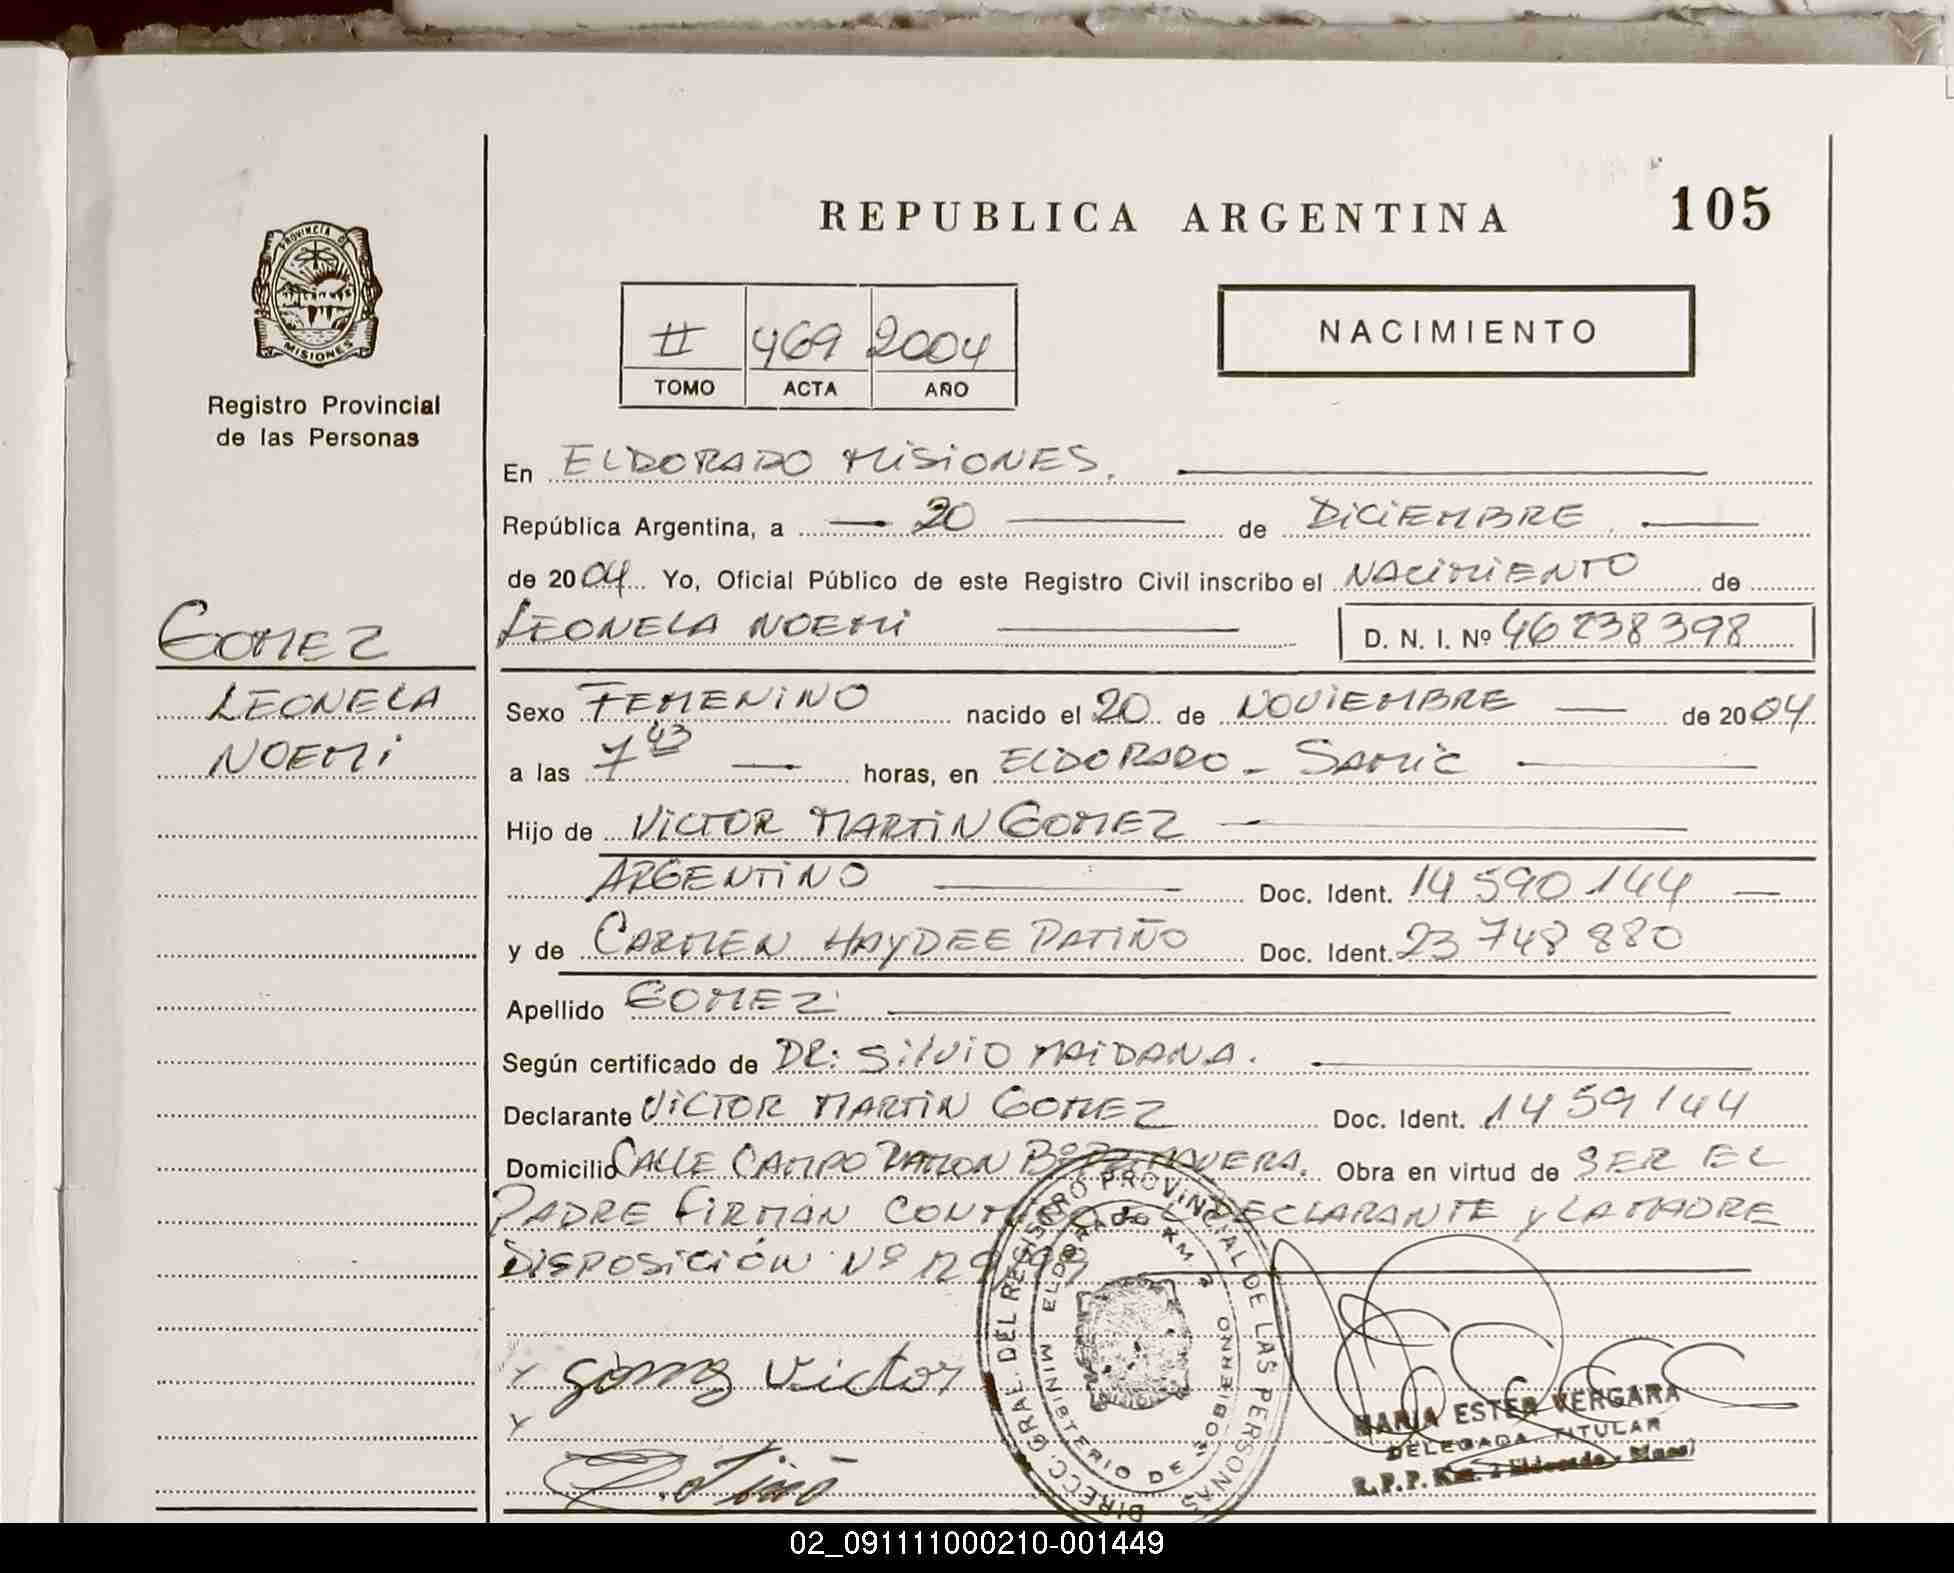 REPUBLICA ARGENTINA
105
PROVINCIA DE
MISIONES
Registro Provincial
de las Personas
II 469 2004
TOMO ACTA AÑO
NACIMIENTO
En ELDORADO MISIONES.
República Argentina, a 20 de DICIEMBRE
de 2004 Yo, Oficial Público de este Registro Civil inscribo el NACIMIENTO de
LEONELA NOEMI D. N. I. Nº 46238398
GOMEZ
LEONELA
NOEMI
Sexo FEMENINO nacido el 20 de NOVIEMBRE de 2004
a las 7 43 horas, en ELDORADO - SAMIC
Hijo de VICTOR MARTIN GOMEZ
ARGENTINO Doc. Ident. 14 590 144
y de CARMEN HAYDEE PATIÑO Doc. Ident. 23 748 880
Apellido GOMEZ
Según certificado de DR: SILVIO MAIDANA.
Declarante VICTOR MARTIN GOMEZ Doc. Ident. 14 59 144
Domicilio CALLE CAMPO RAMON Bº PRIMAVERA. Obra en virtud de SER EL
PADRE FIRMAN CONMIGO EL DECLARANTE y LA MADRE
DISPOSICIÓN Nº
Gomez Victor
Patiño
DIRECC. GRAL. DEL REGISTRO PROVINCIAL DE LAS PERSONAS
MINISTERIO DE GOBIERNO
ELDORADO KM. 2
MARIA ESTER VERGARA
DELEGADA TITULAR
R.P.P. Km. 2 Eldorado - Mnes)
02_091111000210-001449